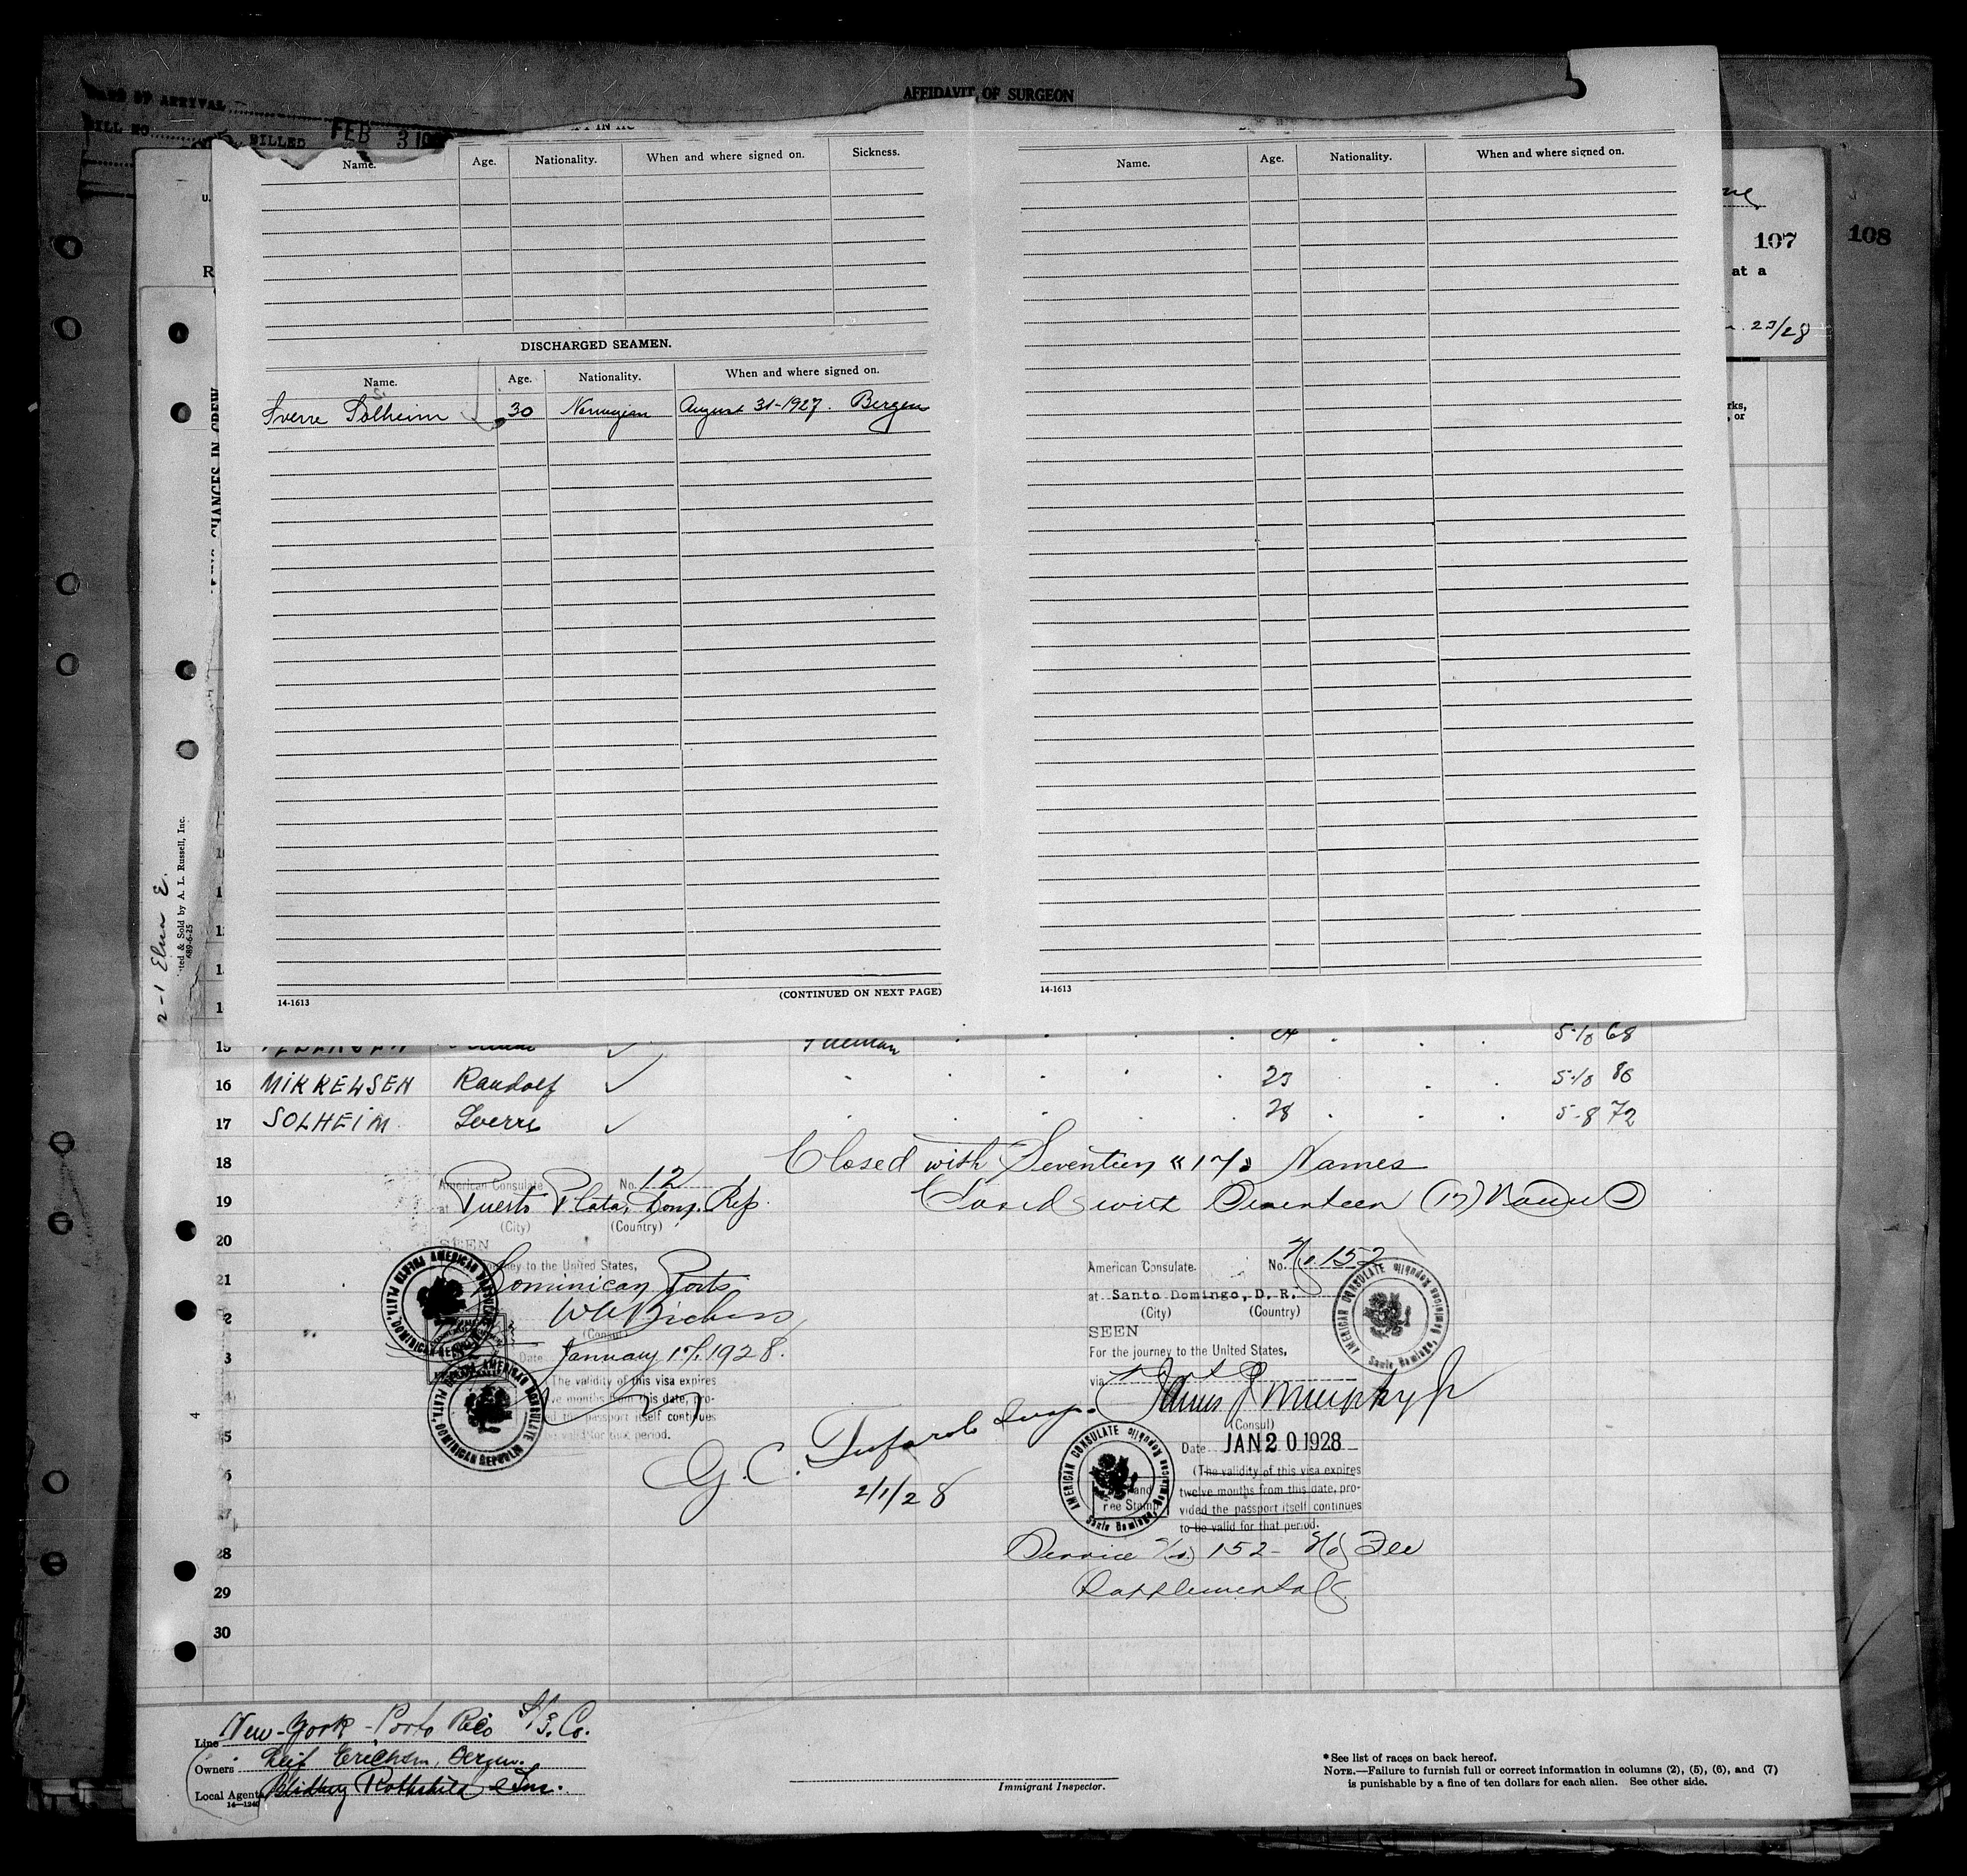 AFFIDAVIT OF SURGEON
OF ARRIVAL
BILL NO.
BILLED FEB 3
Name. Age. Nationality. When and where signed on. Sickness.
DISCHARGED SEAMEN.
Name. Age. Nationality. When and where signed on.
Sverre Solheim 30 Norwegian August 31-1927. Bergen
14-1613 (CONTINUED ON NEXT PAGE)
Name. Age. Nationality. When and where signed on.
14-1613
107
108
at a
23/28
rks,
, or
CHANGES IN CREW
2-1 Elna E.
& Sold by A. L. Russell, Inc.
15
16 MIKKELSEN Randolf ✓ 23 5-10 86
17 SOLHEIM Sverre ✓ 28 5-8 72
18 Closed with Seventeen "17" Names
19 Closed with Seventeen (17) Names
20
21
28
29
30
American Consulate No. 12
at Puerto Plata, Dom. Rep.
(City) (Country)
SEEN
ney to the United States,
Dominican Ports
(Consul)
Date January 17, 1928.
The validity of this visa expires
ve months from this date, pro-
d the passport itself continues
be valid for that period.
AMERICAN CONSULATE PUERTO PLATA, DOMINICAN REPUBLIC
AMERICAN CONSULATE PUERTO PLATA, DOMINICAN REPUBLIC
American Consulate. No. No 152
at Santo Domingo, D. R.
(City) (Country)
SEEN
For the journey to the United States,
via
James J Murphy Jr
(Consul)
Date JAN 20 1928
(The validity of this visa expires
twelve months from this date, pro-
vided the passport itself continues
to be valid for that period.
AMERICAN CONSULATE Santo Domingo, Dominican Republic
AMERICAN CONSULATE Santo Domingo, Dominican Republic
and
ree Stamp
G. C. Insp.
2/1/28
Service No. 152 - No Fee
Supplemental
Line New-York - Porto Rico S/S. Co.
Owners Leif Erichsen, Bergen.
Local Agents Rothschild & Inc.
14-1240
Immigrant Inspector.
*See list of races on back hereof.
NOTE.—Failure to furnish full or correct information in columns (2), (5), (6), and (7)
is punishable by a fine of ten dollars for each alien. See other side.